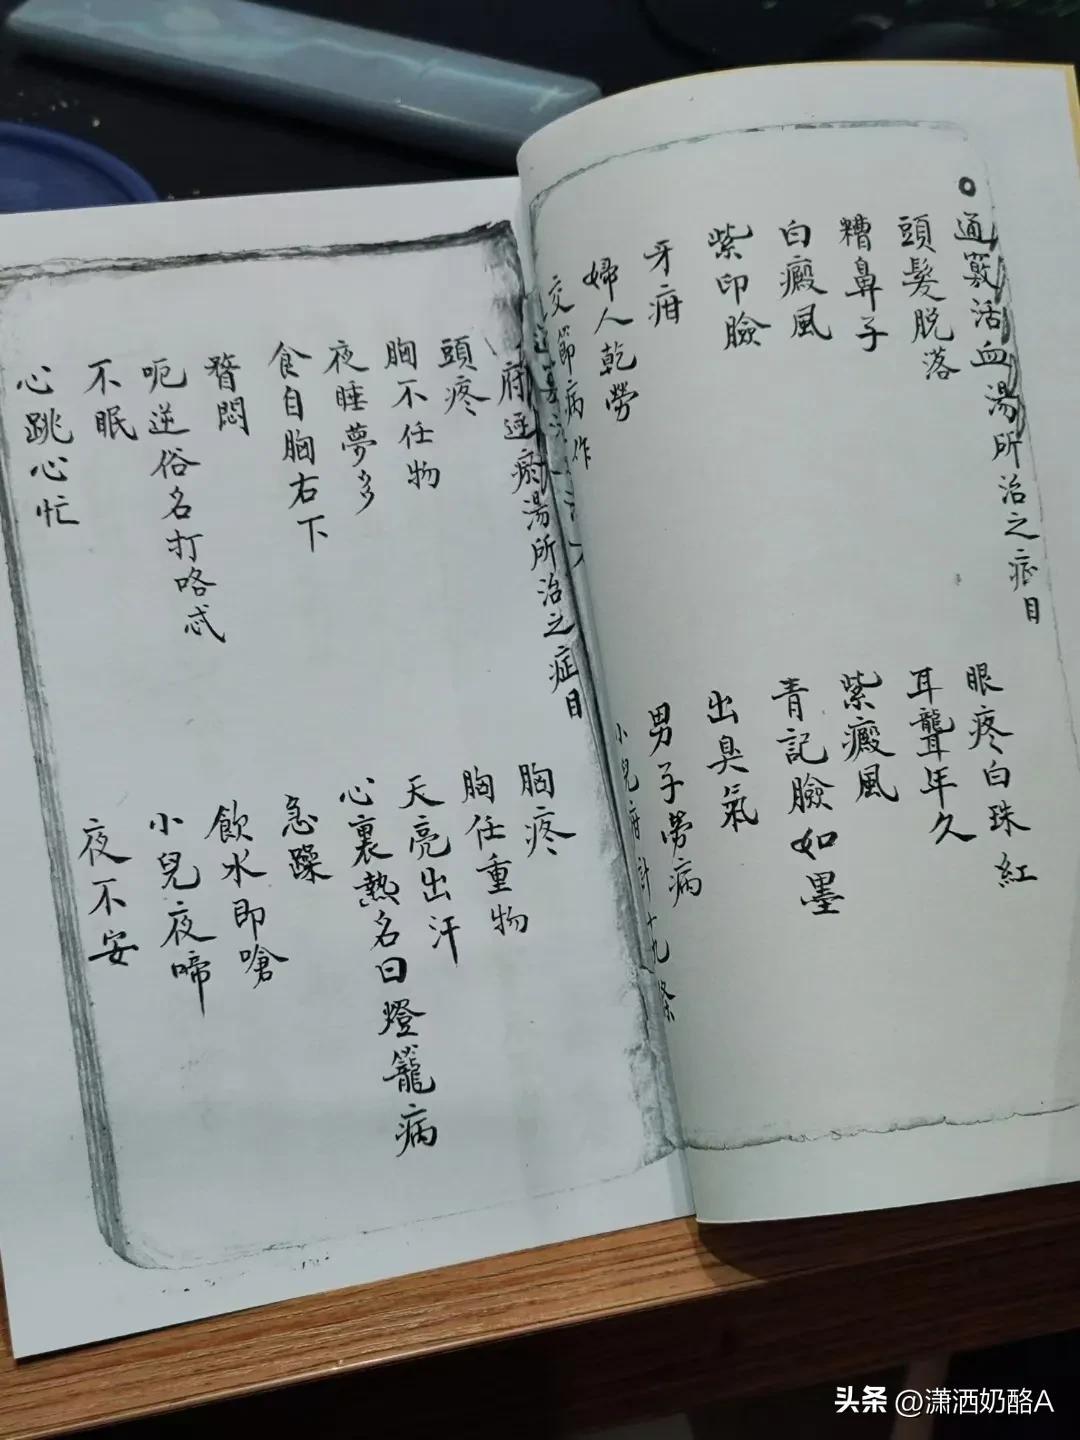 通竅活血湯所治之症目
頭髮脱落
眼疼白珠紅
糟鼻子
耳聾年久
白癜風
紫癜風
紫印臉
青記臉如墨
牙疳
出臭氣
婦人乾勞
男子勞病
交節病作
小兒疳計十九條
府逐瘀湯所治之症目
頭疼
胸疼
胸不任物
胸任重物
夜睡夢多
天亮出汗
食自胸右下
心裏熱名曰燈籠病
瞀悶
急躁
呃逆俗名打咯忒
飲水即嗆
不眠
小兒夜啼
心跳心忙
夜不安
头条 @潇洒奶酪A